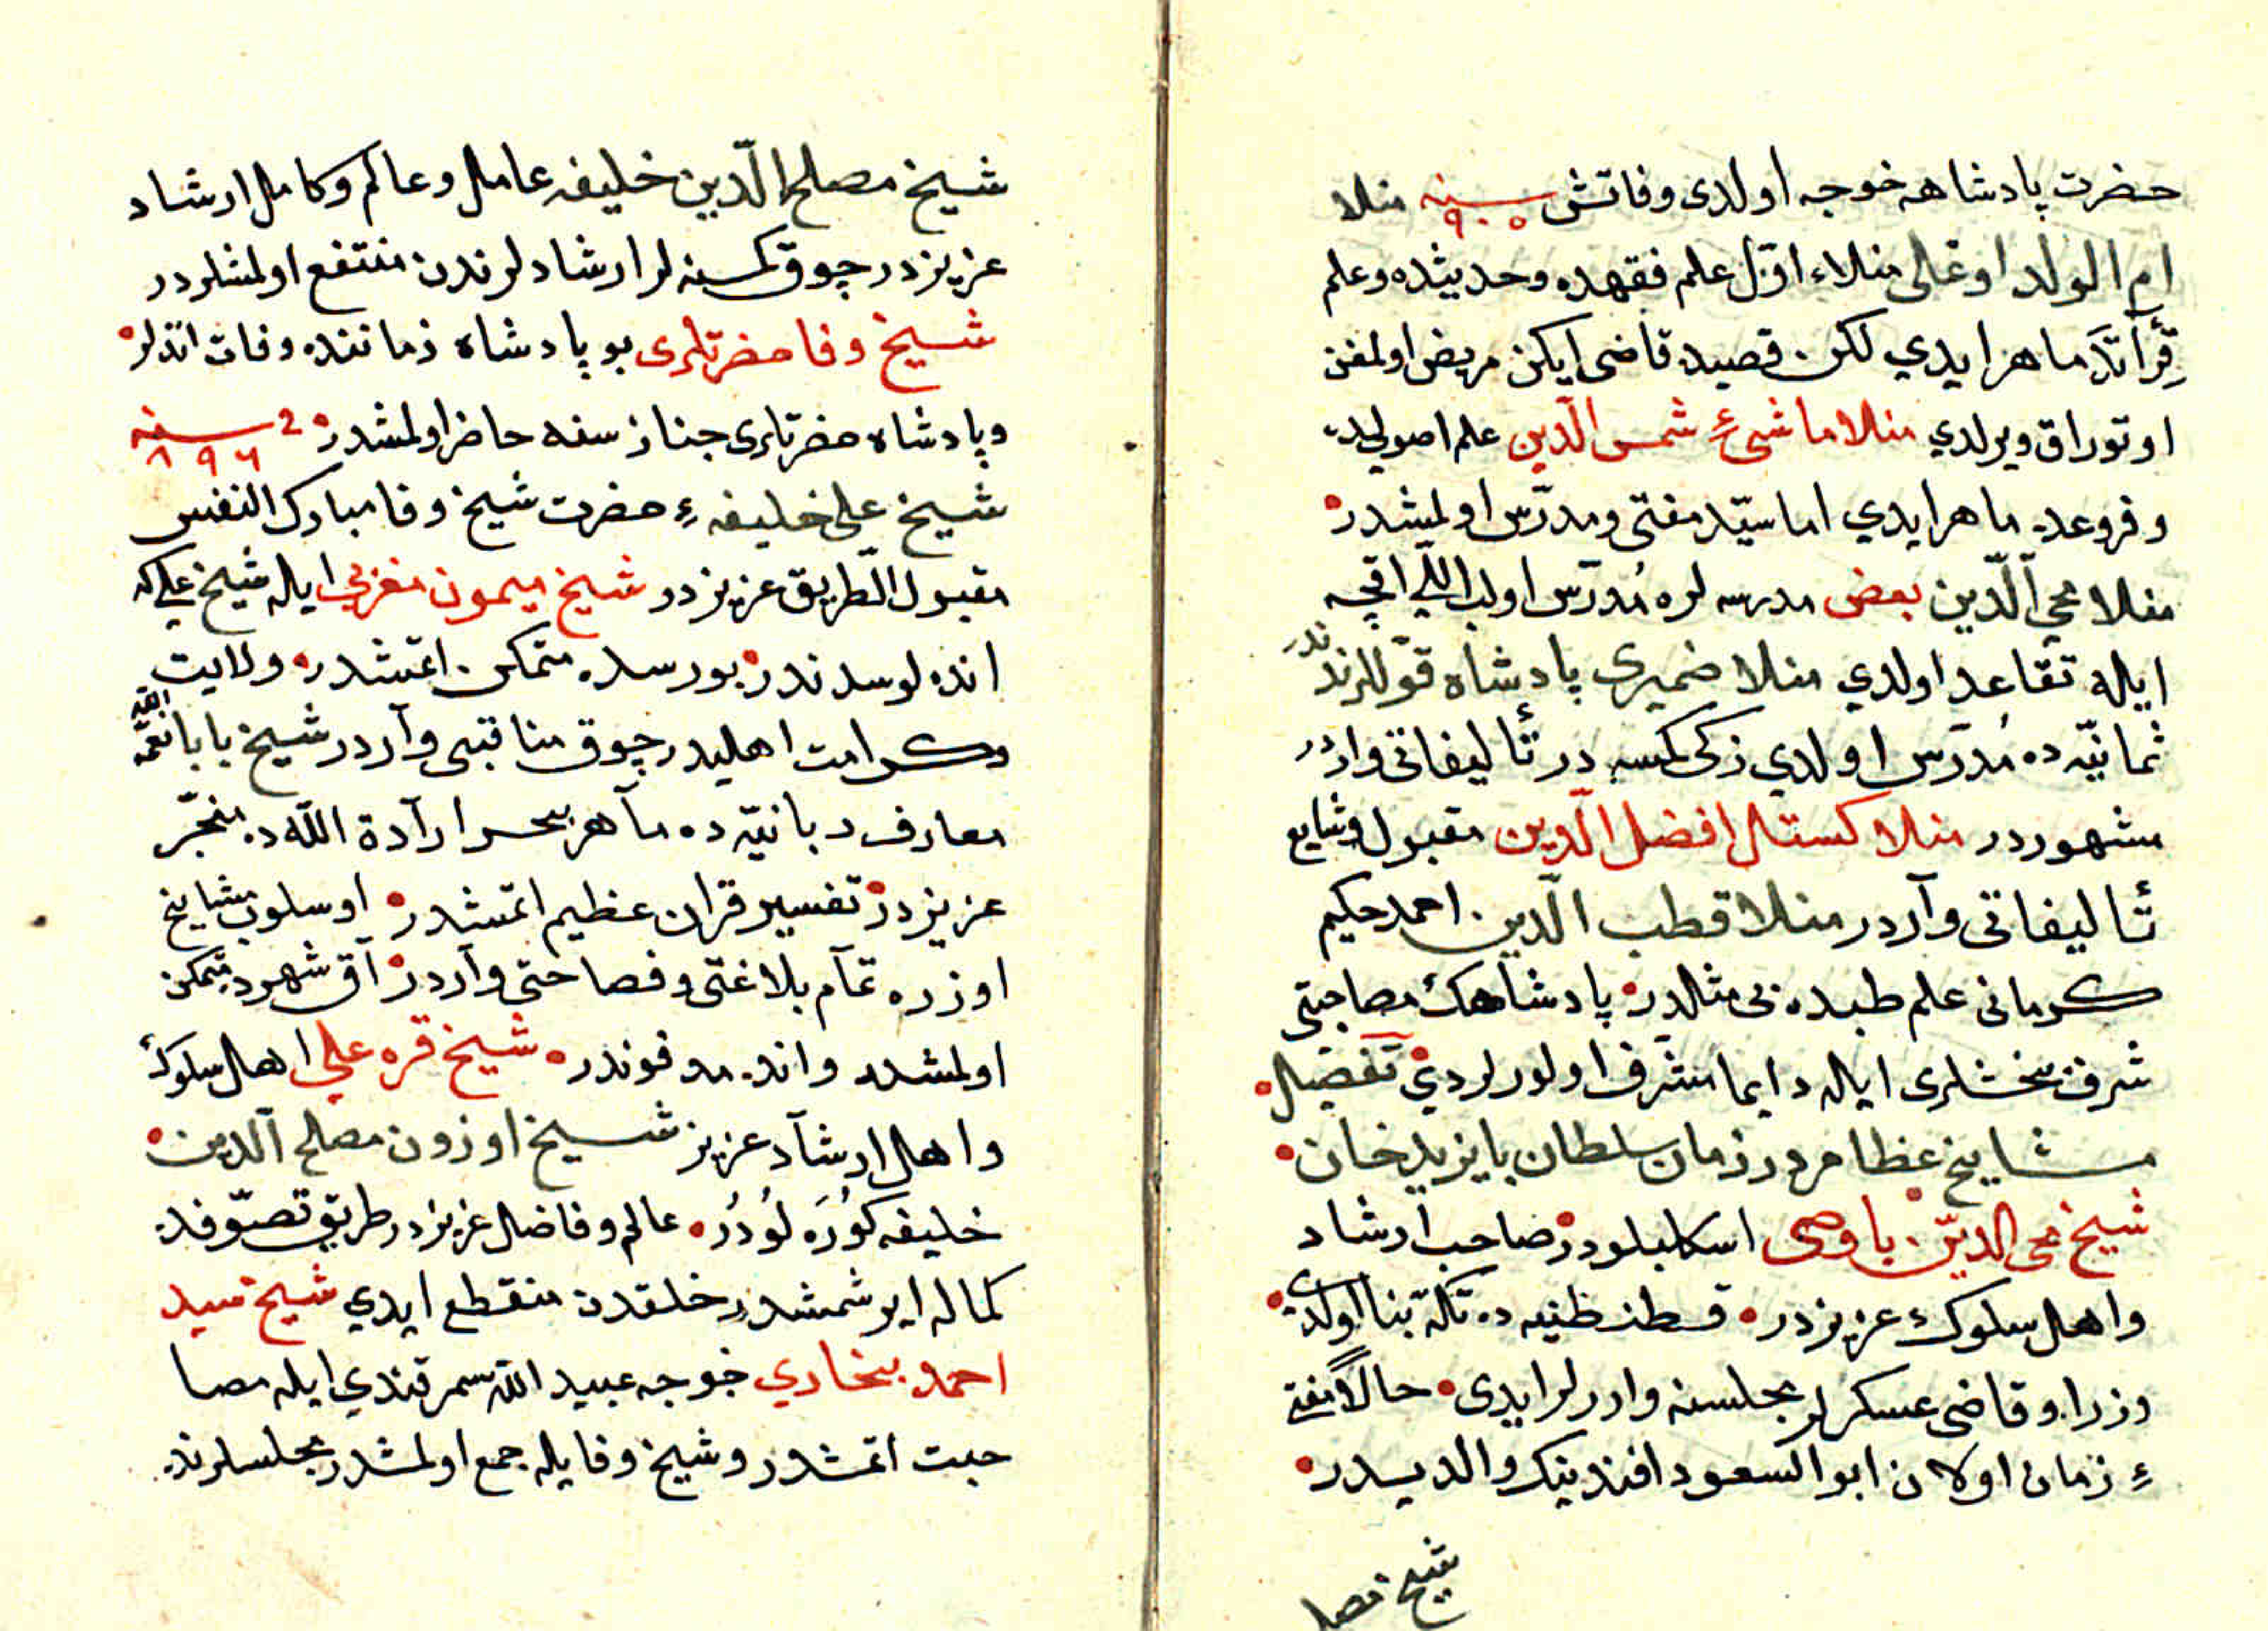 حضرت پادشاهه خوجه اولدی وفاتش سنه ٩٠٥ منلا
ام الولد اوغلی منلاء اوّل علم فقهده وحديثده وعلم
قِرأتدَ ماهر ايدي لكن قصيده قاضی ايكن مريض اولمغن
اوتوراق ويرلدي منلا ماشیءِ شمس الدّين علم اصولده
وفروعده ماهر ايدي اما سيّد مفتی ومدرّس اولمشدر
منلا محي الدّين بعض مدرسه لره مُدرّس اولب اللي اقچه
ايله تقاعد اولدي منلا ضميری پادشاه قوللرندندر
ثمانيّه ده مُدرّس اولدي زكی كمسه در تأليفاتی واردر
مشهوردر منلا كستال افضل الدّين مقبول وشايع
تأليفاتی وآردر منلا قطب الدّين احمد حكيم
كرمانی علم طبده بی مثالدر پادشاهك مصاحبتی
شرف بخشلری ايله دايما مشرف اولورلردي تفضيل
مشايخ عظام در زمان سلطان بايزيد خان
شيخ محی الدّين ياوصی اسكليلودر صاحب ارشاد
واهل سلوك عزيزدر قسطنطنيه ده تكّه بنا اولدی
وزراء وقاضی عسكرلر مجلسنه واررلر ايدی حالاً مفتی
ءِ زمان اولان ابو السعود افندينك والديدر
شيخ مصلح
شيخ مصلح الدّين خليفه عامل وعالم وكامل ارشاد
عزيزدر چوق كمسنه لر ارشادلرندن منتفع اولمشلردر
شيخ وفا حضرتلری بو پادشاه زماننده وفات اتدلر
وپادشاه حضرتلری جنازسنه حاضر اولمشدر سنه ٨٩٦
شيخ علی خليفهءِ حضرت شيخ وفا مبارك النفس
مقبول الطّريق عزيزدر شيخ ميمون مغربي ايله شيخ علی كه
اندلوسدندر بورسده متمكن اتمشدر ولايت
وكرامت اهليدر چوق مناقبی وآردر شيخ بابا نعمة الله
معارف ربانيّه ده مآهر بحر ارآدة اللّه ده متبحّر
عزيزدر تفسير قران عظيم اتمشدر اوسلوب مشايخ
اوزره تمآم بلاغتی وفصاحتی وآردر آق شهرده متمكن
اولمشدر وانده مدفوندر شيخ قره علي اهل سلوك
واهل ارشآد عزيز شيخ اوزون مصلح الدّين
خليفه كُورَه لُودُر عالم وفاضل عزيزدر طريق تصوّفده
كماله ايرشمشدر خلقدن منقطع ايدي شيخ سيد
احمد بخاري خوجه عبيد اللّه سمرقندي ايله مصا
حبت اتمشدر وشيخ وفا يله جمع اولمشدر مجلسلرنده